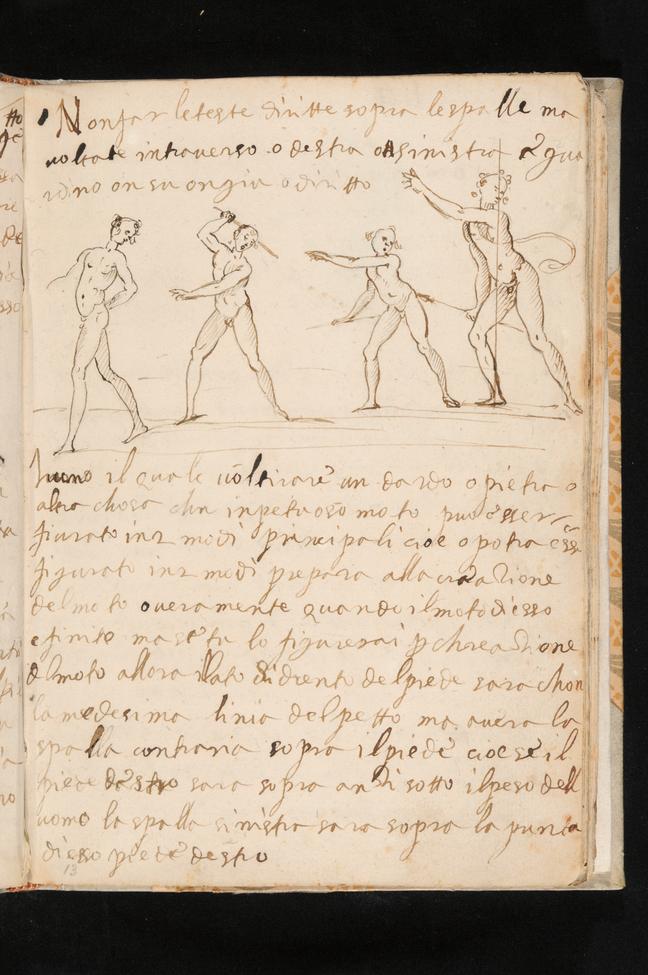 Non far le teste diritte sopra le spalle ma
voltate in traverso o destra o sinistra
dino on su on giu o diritto
huomo il quale vol tirare un dardo o pietra o
altra chosa chn inpetuoso moto puo esser
figurato in 2 modi principali cioe o potra esse
figurato in 2 modi prepara alla creatione
del moto overamente quando il moto di esso
e finito ma se tu lo figurerai p chreatione
del moto allora il lato didrento del piede sara chon
la medesima linia del petto ma avera la
spalla contraria sopra il piede cioe se il
piede destro sara sopra sotto il peso dell
uomo la spalla sinistra sara sopra la punta
di esso piede destro
13